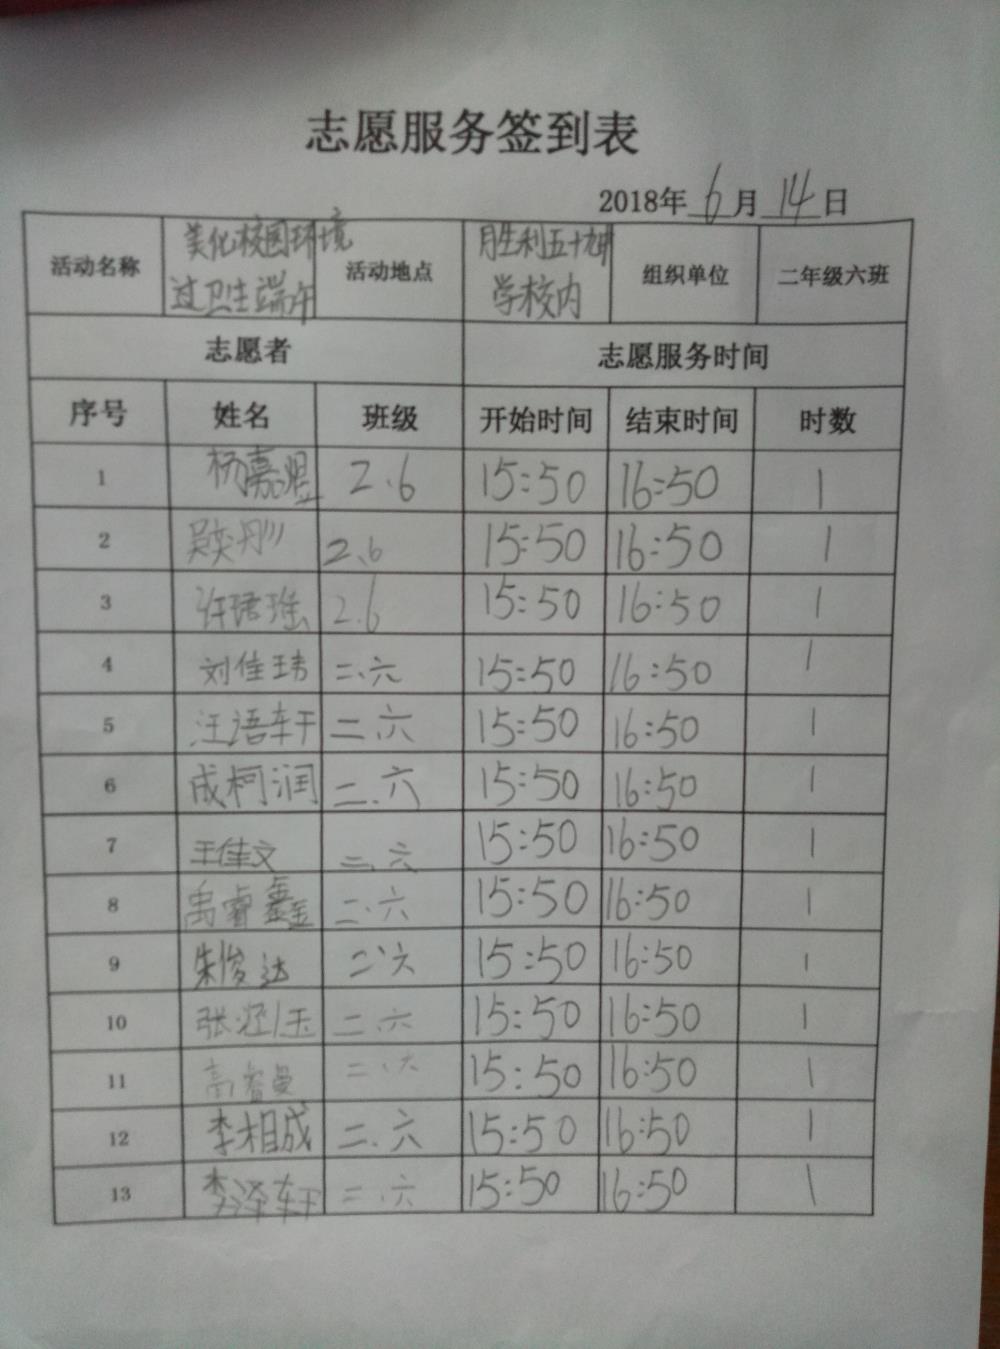 志愿服务签到表
2018年 6 月 14 日
活动名称 美化校园环境 过卫生端午 活动地点 胜利五十九中 学校内 组织单位 二年级六班
志愿者 志愿服务时间
序号 姓名 班级 开始时间 结束时间 时数
1 杨嘉煜 2.6 15:50 16:50 1
2 2.6 15:50 16:50 1
3 许珺瑶 2.6 15:50 16:50 1
4 刘佳玮 二.六 15:50 16:50 1
5 汪语轩 二.六 15:50 16:50 1
6 成柯润 二.六 15:50 16:50 1
7 王佳文 二.六 15:50 16:50 1
8 禹睿鑫 二.六 15:50 16:50 1
9 朱俊达 二.六 15:50 16:50 1
10 张 玉 二.六 15:50 16:50 1
11 高睿曼 二.六 15:50 16:50 1
12 李相成 二.六 15:50 16:50 1
13 李泽轩 二.六 15:50 16:50 1